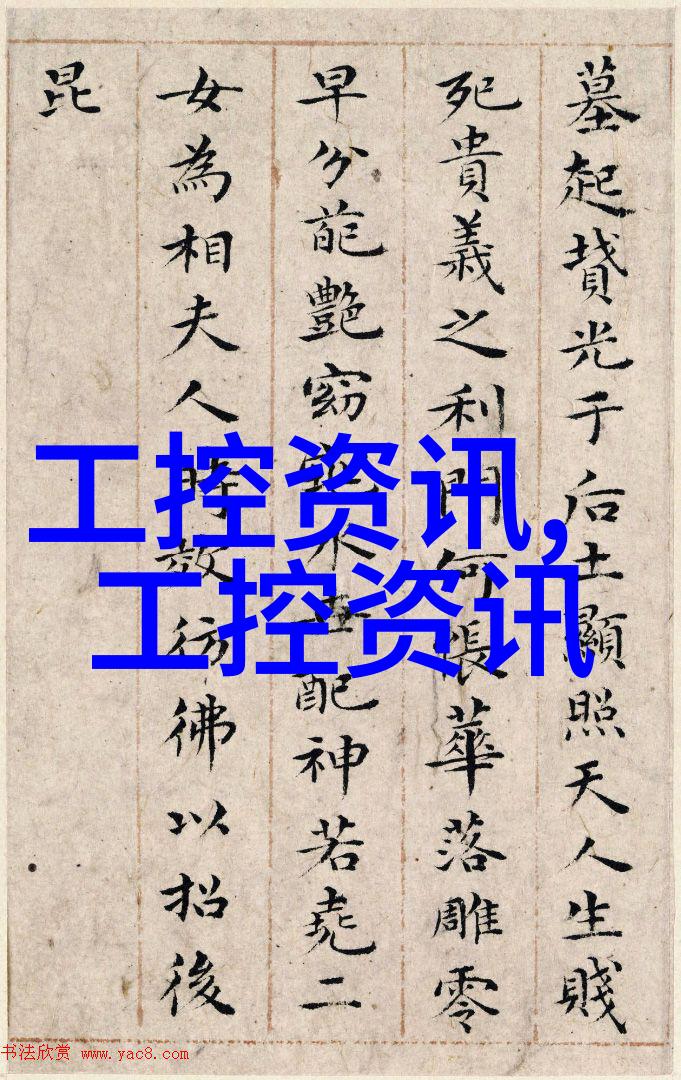 墓起墳光于后土顯照天人生賤
死貴義之利門何悵華落雕零
早分葩艷窈窕永世配神若堯二
女為相夫人時效彷彿以招後
昆
工控资讯,
工控资讯
书法欣赏 www.yac8.com